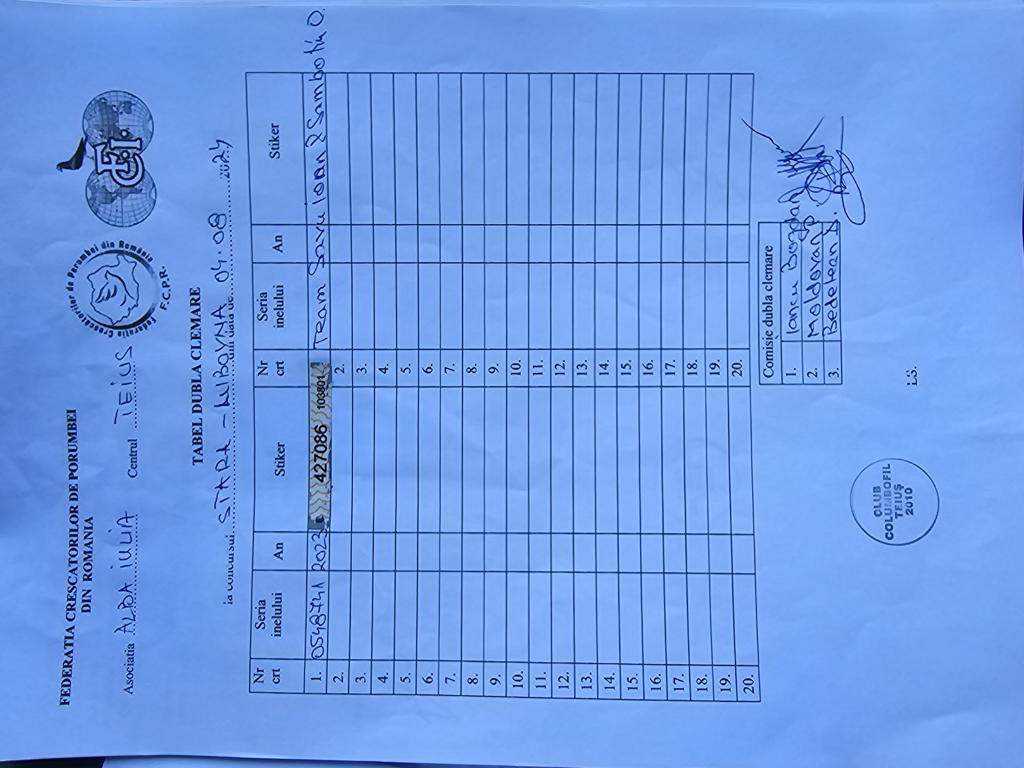 FEDERATIA CRESCATORILOR DE PORUMBEI
DIN ROMANIA
Federatia Crescătorilor de Porumbei din România
F.C.P.R.
FCI
Asociatia ALBA IULIA Centrul TEIUS
TABEL DUBLA CLEMARE
la concursul STARA - LUBOVNA din data de 04.08 2024
Nr crt Seria inelului An Stiker Nr crt Seria inelului An Stiker
1. 0548741 2023 427086 103801 Team Savu Ion & Sambotin O.
2. 2.
3. 3.
4. 4.
5. 5.
6. 6.
7. 7.
8. 8.
9. 9.
10. 10.
11. 11.
12. 12.
13. 13.
14. 14.
15. 15.
16. 16.
17. 17.
18. 18.
19. 19.
20. 20.
Comisie dubla clemare
1. Iancu Bogdan
2. Moldovan P
3. Bedelean N.
LS.
CLUB
COLUMBOFIL
TEIUȘ
2010